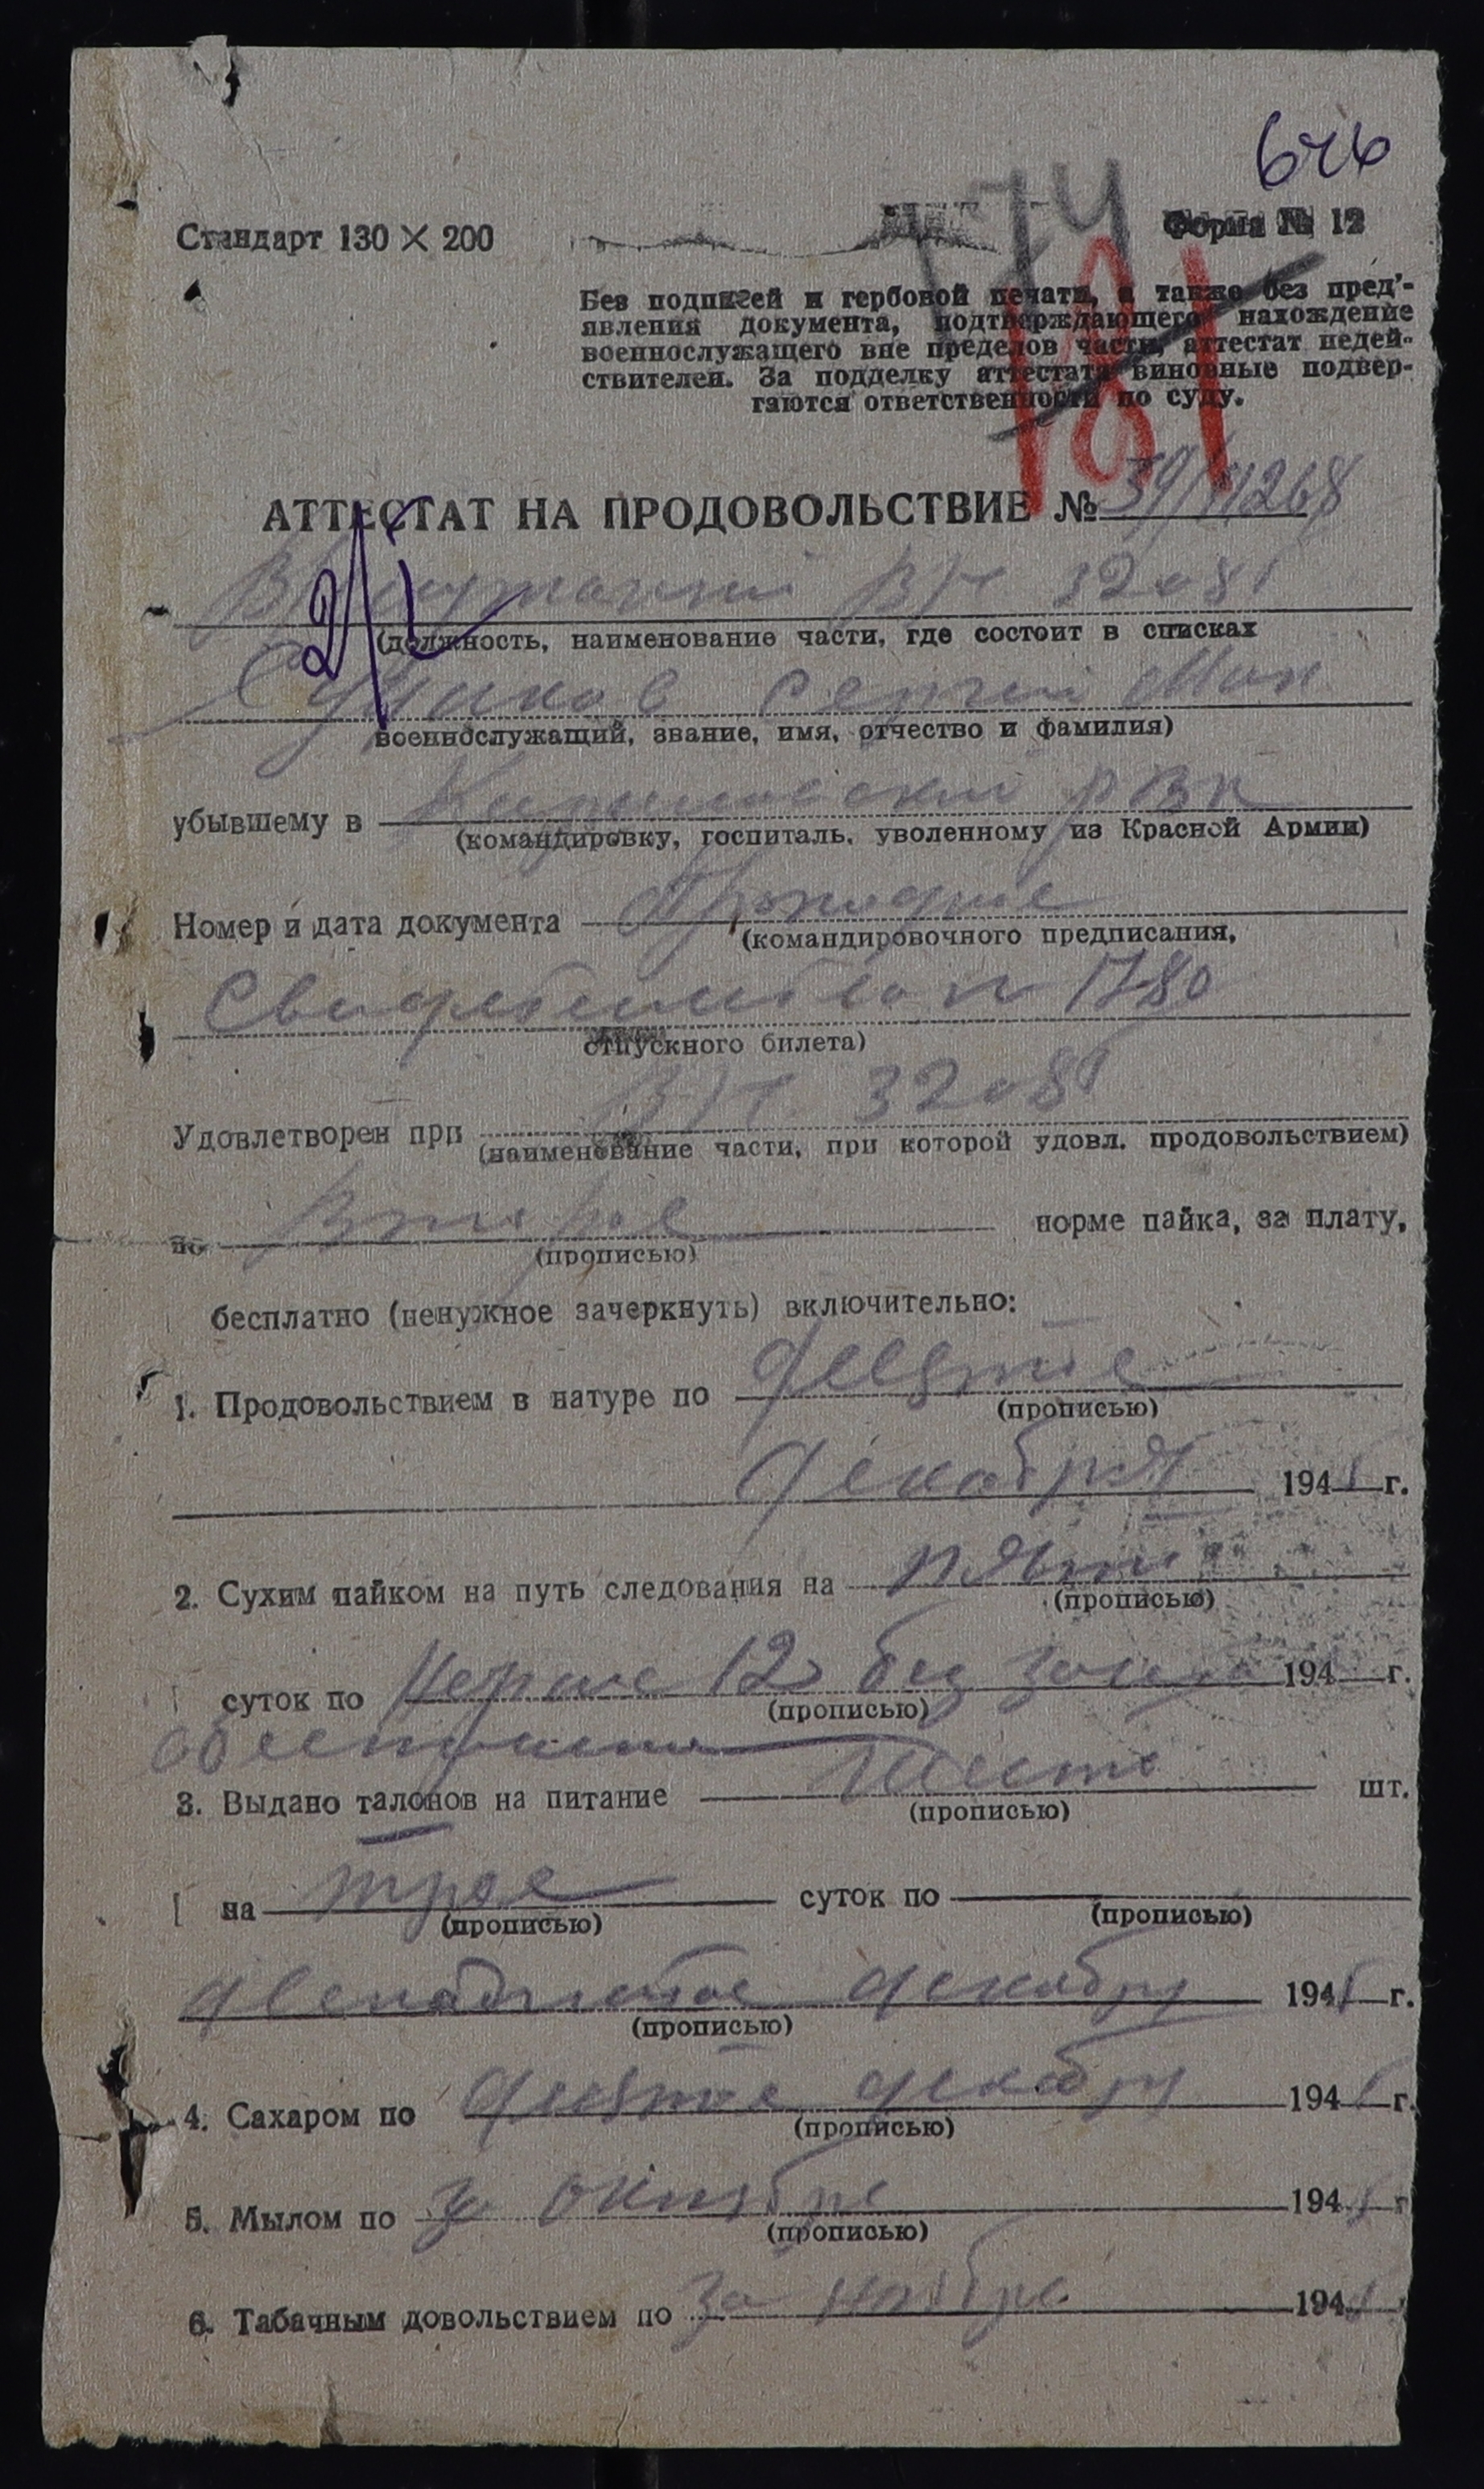 646
174
Стандарт 130 × 200
Форма № 12
181
Без подписей и гербовой печати, а также без пред'-
явления документа, подтверждающего нахождение
военнослужащего вне пределов части, аттестат недей-
ствителен. За подделку аттестата виновные подвер-
гаются ответственности по суду.
АТТЕСТАТ НА ПРОДОВОЛЬСТВИЕ № 39/11268
В/ч 32081
(должность, наименование части, где состоит в списках
Сергей
военнослужащий, звание, имя, отчество и фамилия)
убывшему в РВК
(командировку, госпиталь, уволенному из Красной Армии)
Номер и дата документа
(командировочного предписания,
1780
отпускного билета)
В/ч 32081
Удовлетворен при
(наименование части, при которой удовл. продовольствием)
по норме пайка, за плату,
(прописью)
бесплатно (ненужное зачеркнуть) включительно:
1. Продовольствием в натуре по девятое
(прописью)
декабря 1945 г.
2. Сухим пайком на путь следования на пять
(прописью)
суток по норме 12 без 194 г.
(прописью)
3. Выдано талонов на питание шт.
(прописью)
на трое суток по
(прописью) (прописью)
двенадцатое декабря 1945 г.
(прописью)
4. Сахаром по девятое декабря 1945 г.
(прописью)
5. Мылом по за октябрь 1945 г
(прописью)
6. Табачным довольствием по за ноябрь 1945